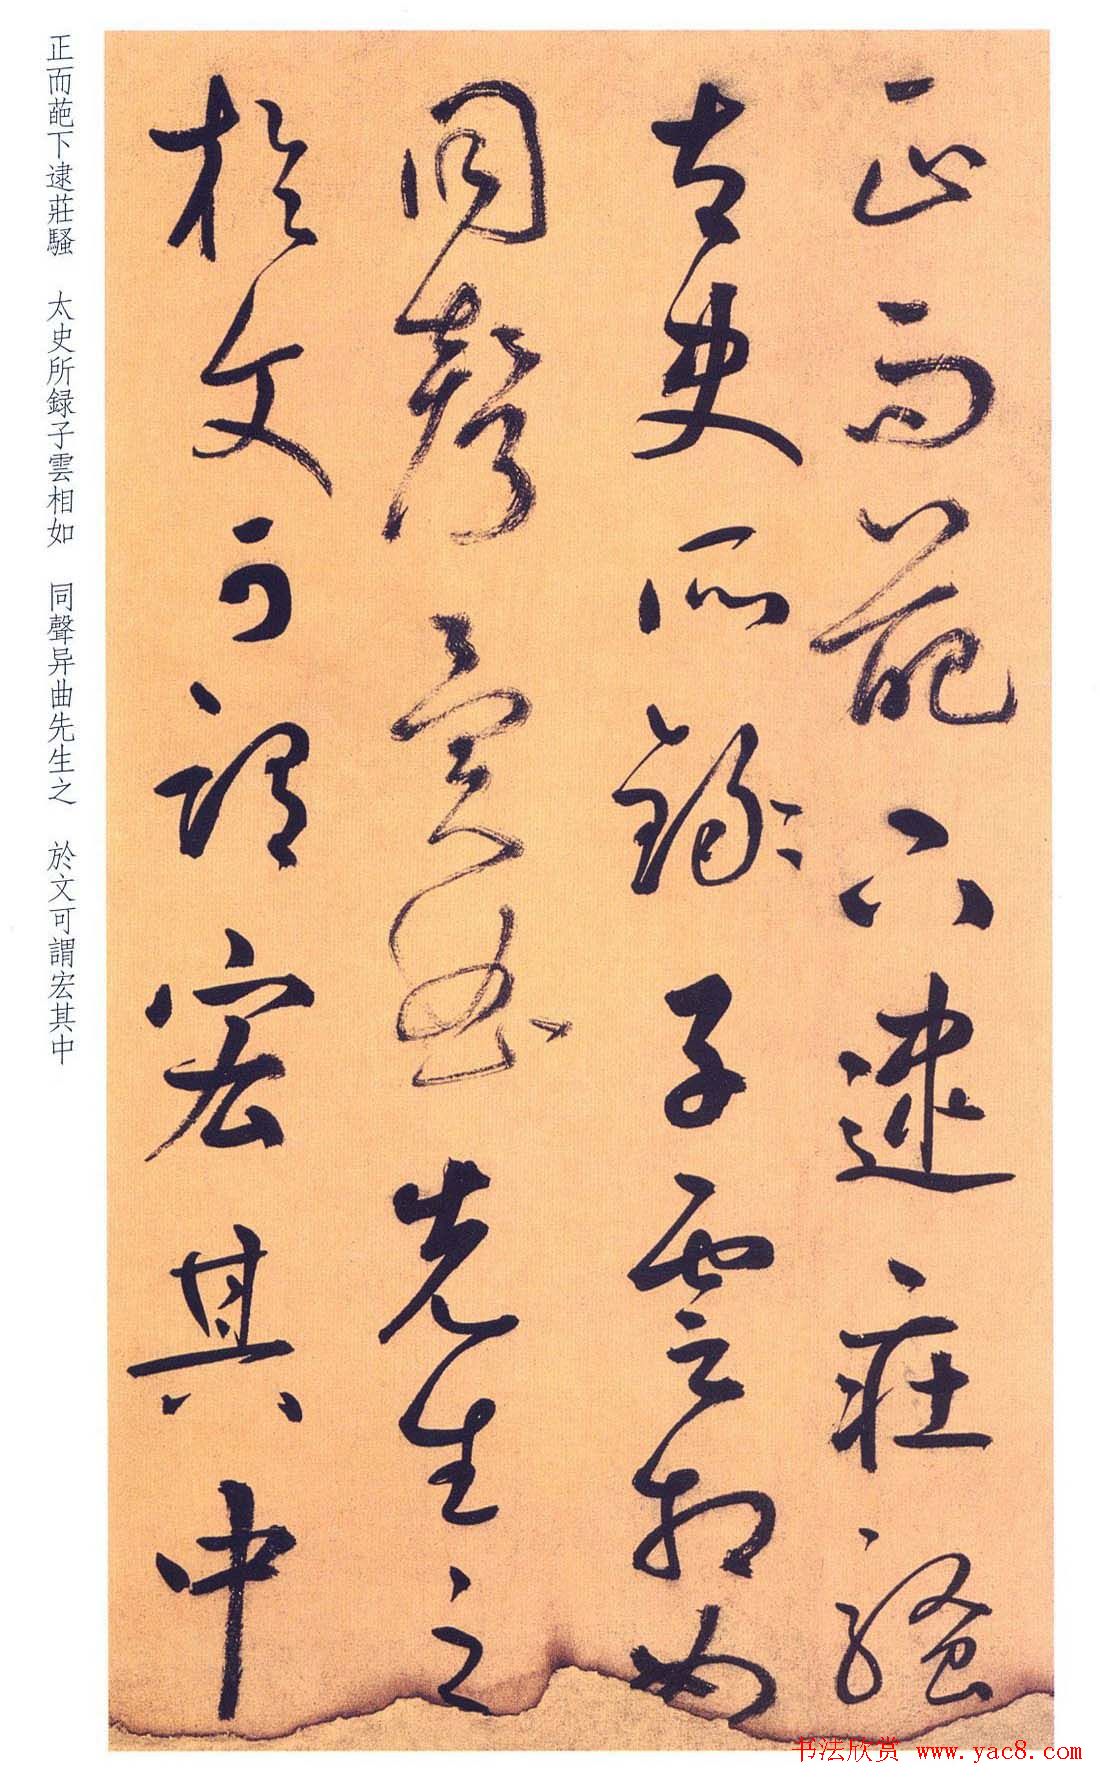 正而葩下逮莊騷
太史所錄子雲相如
同聲異曲先生之
於文可謂宏其中
正而葩下逮莊騷　太史所録子雲相如　同聲异曲先生之　於文可謂宏其中
书法欣赏 www.yac8.com